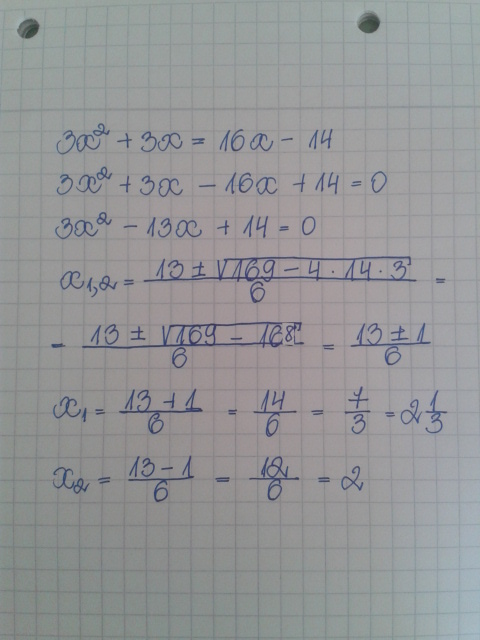 3x² + 3x = 16x - 14
3x² + 3x - 16x + 14 = 0
3x² - 13x + 14 = 0
x₁,₂ = (13 ± √(169 - 4 · 14 · 3))/6 =
= (13 ± √(169 - 168))/6 = (13 ± 1)/6
x₁ = (13 + 1)/6 = 14/6 = 7/3 = 2 1/3
x₂ = (13 - 1)/6 = 12/6 = 2